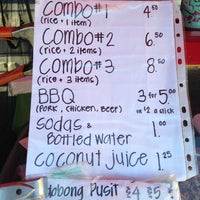 Combo#1 4.50
(rice + 1 item)
Combo#2 6.50
(rice + 2 items)
Combo #3 8.50
(rice + 3 items)
BBQ 3 for 5.00
(PORK, CHICKEN, BEEF) or $2 a stick
SODAS &
Bottled Water 1.00
Coconut Juice 1.25
dobong Pusit $4 $5